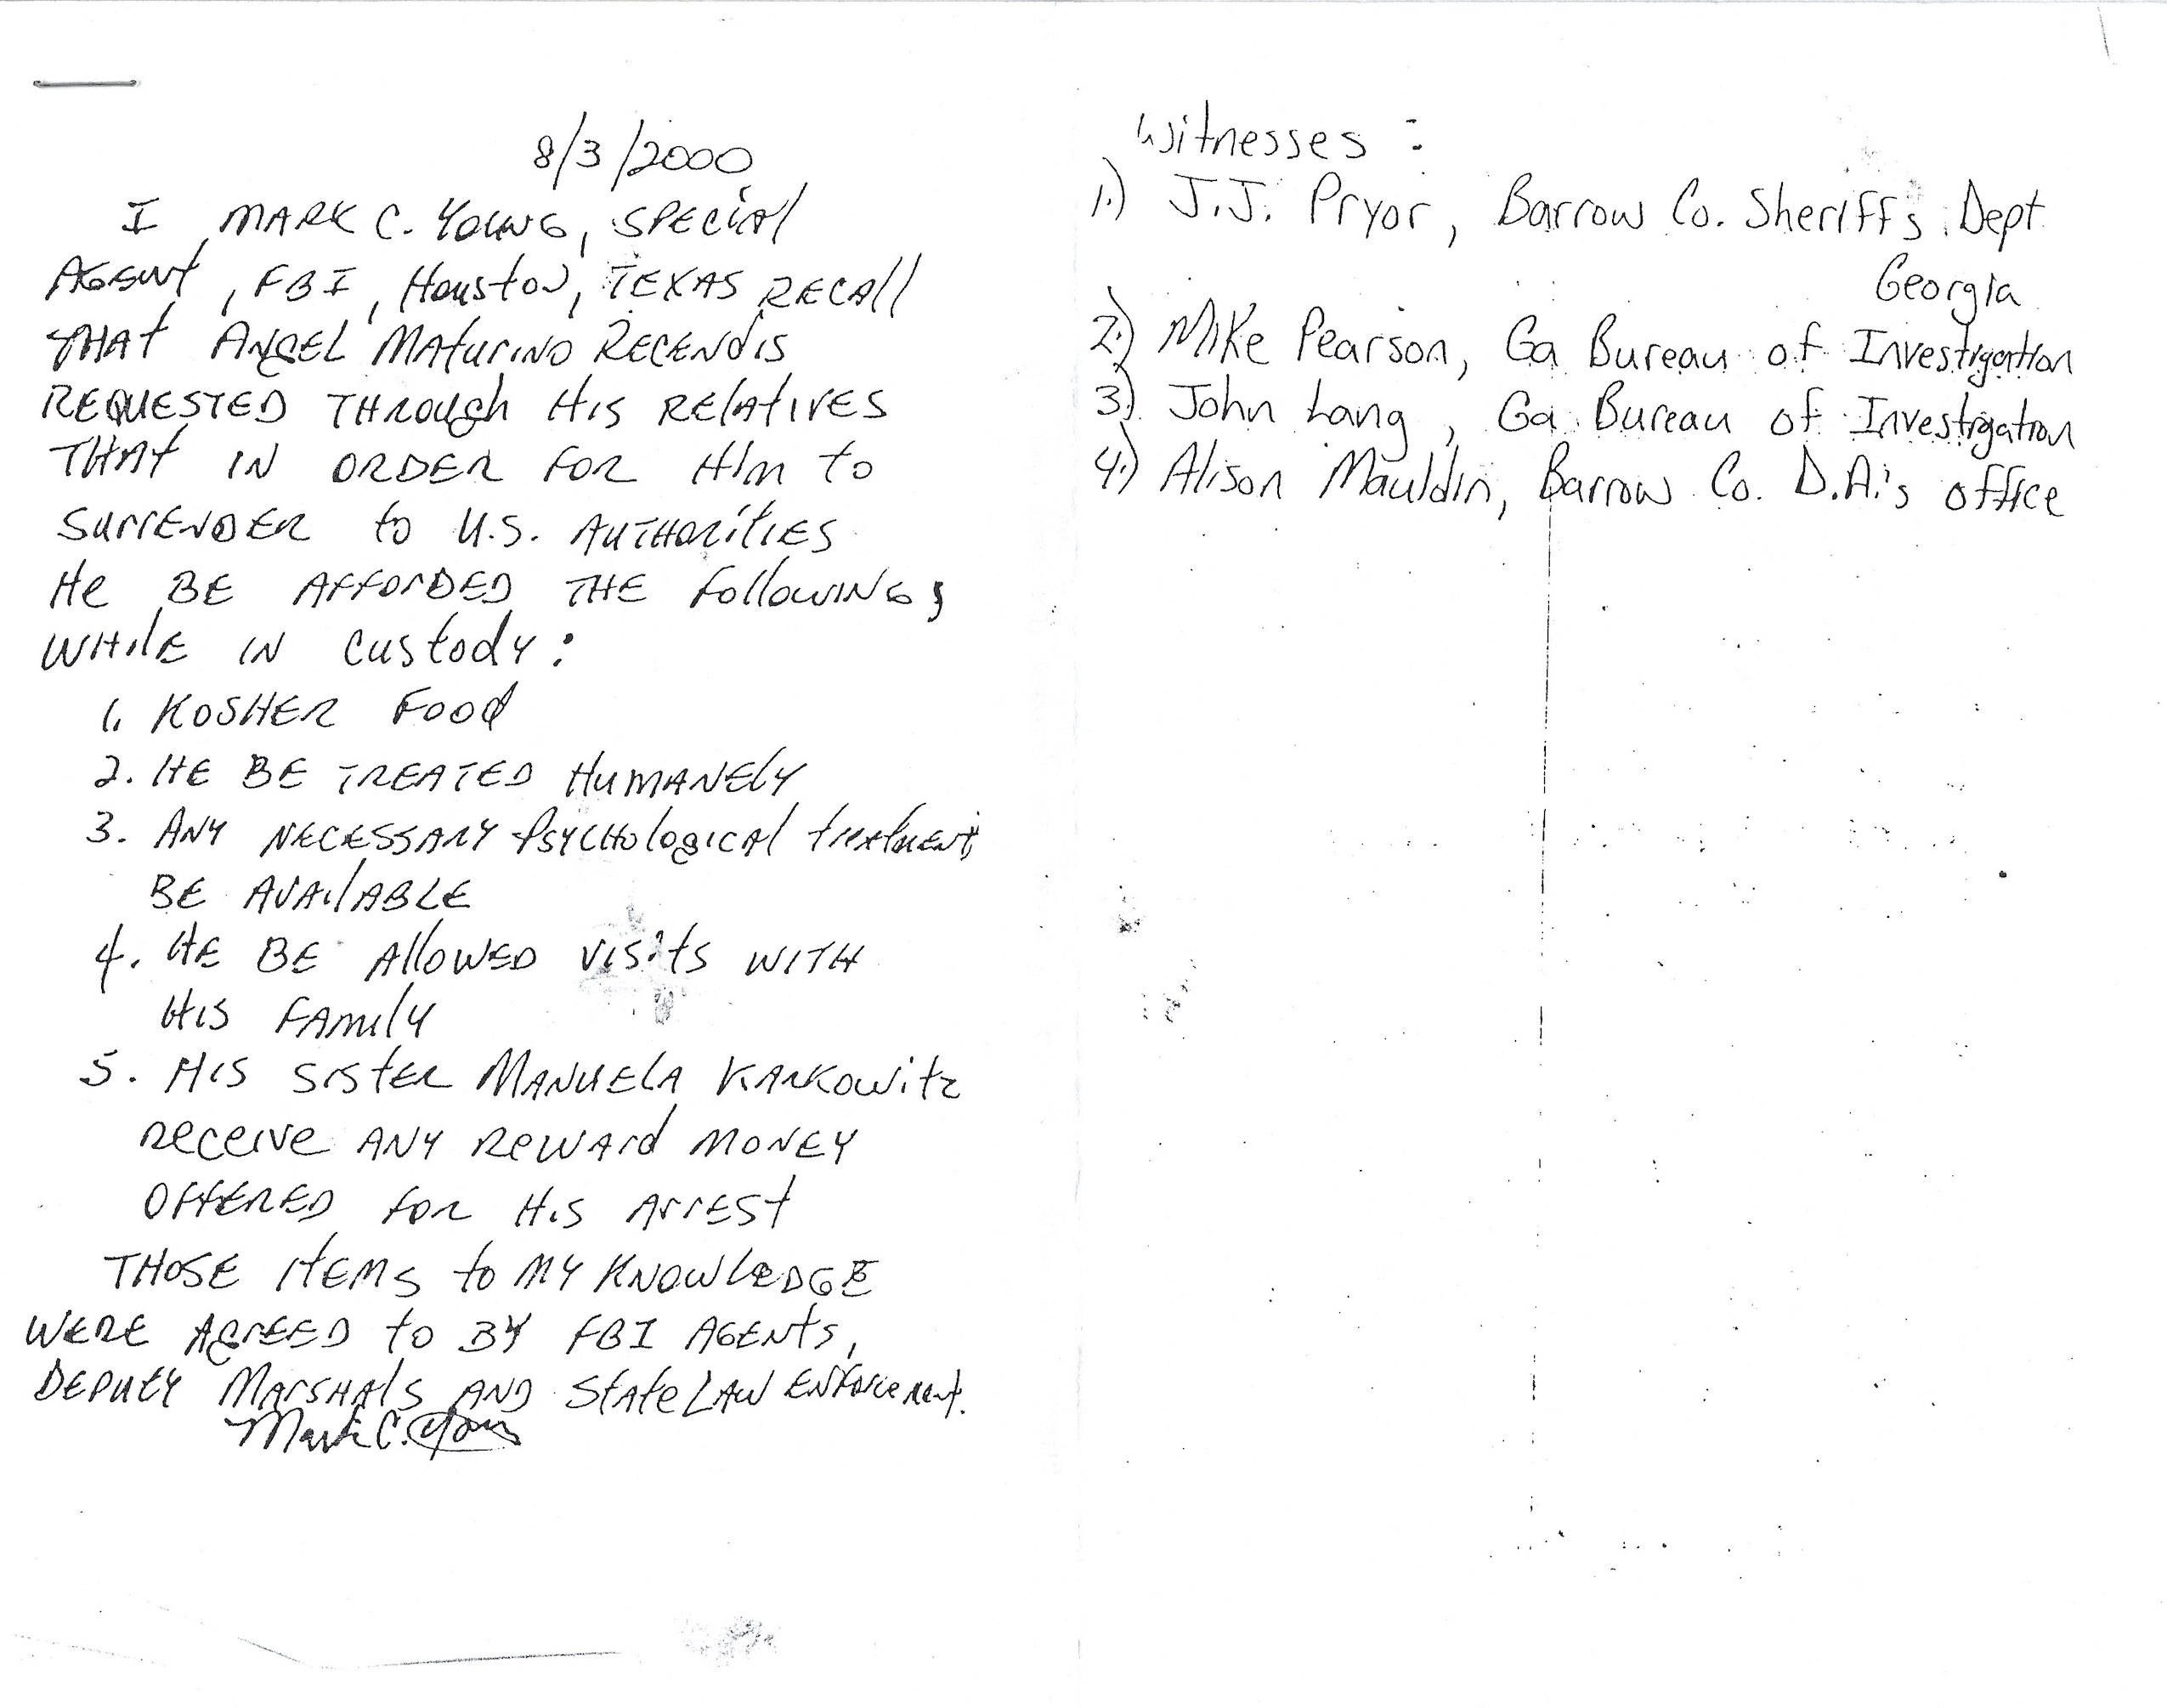 8/3/2000
I MARK C. YOUNG, SPECIAL
AGENT, FBI, Houston, TEXAS RECALL
THAT ANGEL MATURINO RECENDIS
REQUESTED THROUGH HIS RELATIVES
THAT IN ORDER FOR HIM TO
SURRENDER to U.S. AUTHORITIES
He BE AFFORDED THE FOLLOWING,
WHILE IN CUSTODY:
1. KOSHER FOOD
2. HE BE TREATED HUMANELY
3. ANY NECESSARY PSYCHOLOGICAL treatment
BE AVAILABLE
4. HE BE ALLOWED VISITS WITH
HIS FAMILY
5. HIS SISTER MANUELA KARKOWITZ
RECEIVE ANY REWARD MONEY
OFFERED FOR HIS ARREST
THOSE ITEMS to MY KNOWLEDGE
WERE AGREED to BY FBI AGENTS,
DEPUTY MARSHALS AND STATE LAW ENFORCEMENT.
Mark C. Young
Witnesses:
1.) J.J. Pryor, Barrow Co. Sheriffs Dept
Georgia
2.) Mike Pearson, Ga Bureau of Investigation
3.) John Lang, Ga Bureau of Investigation
4.) Alison Mauldin, Barrow Co. D.A.'s office